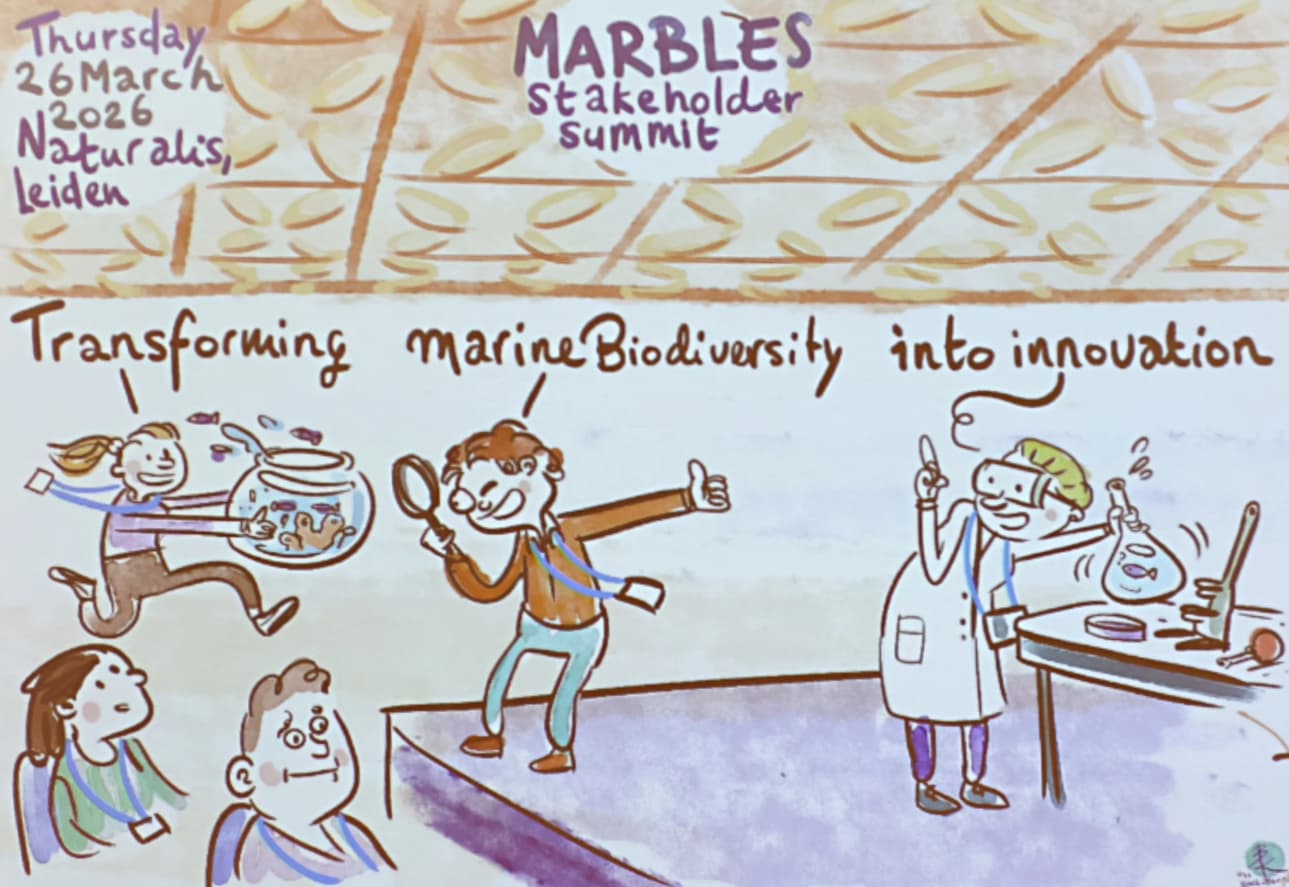 Thursday
26 March
2026
Naturalis,
Leiden
MARBLES
stakeholder
summit
Transforming marine Biodiversity into innovation